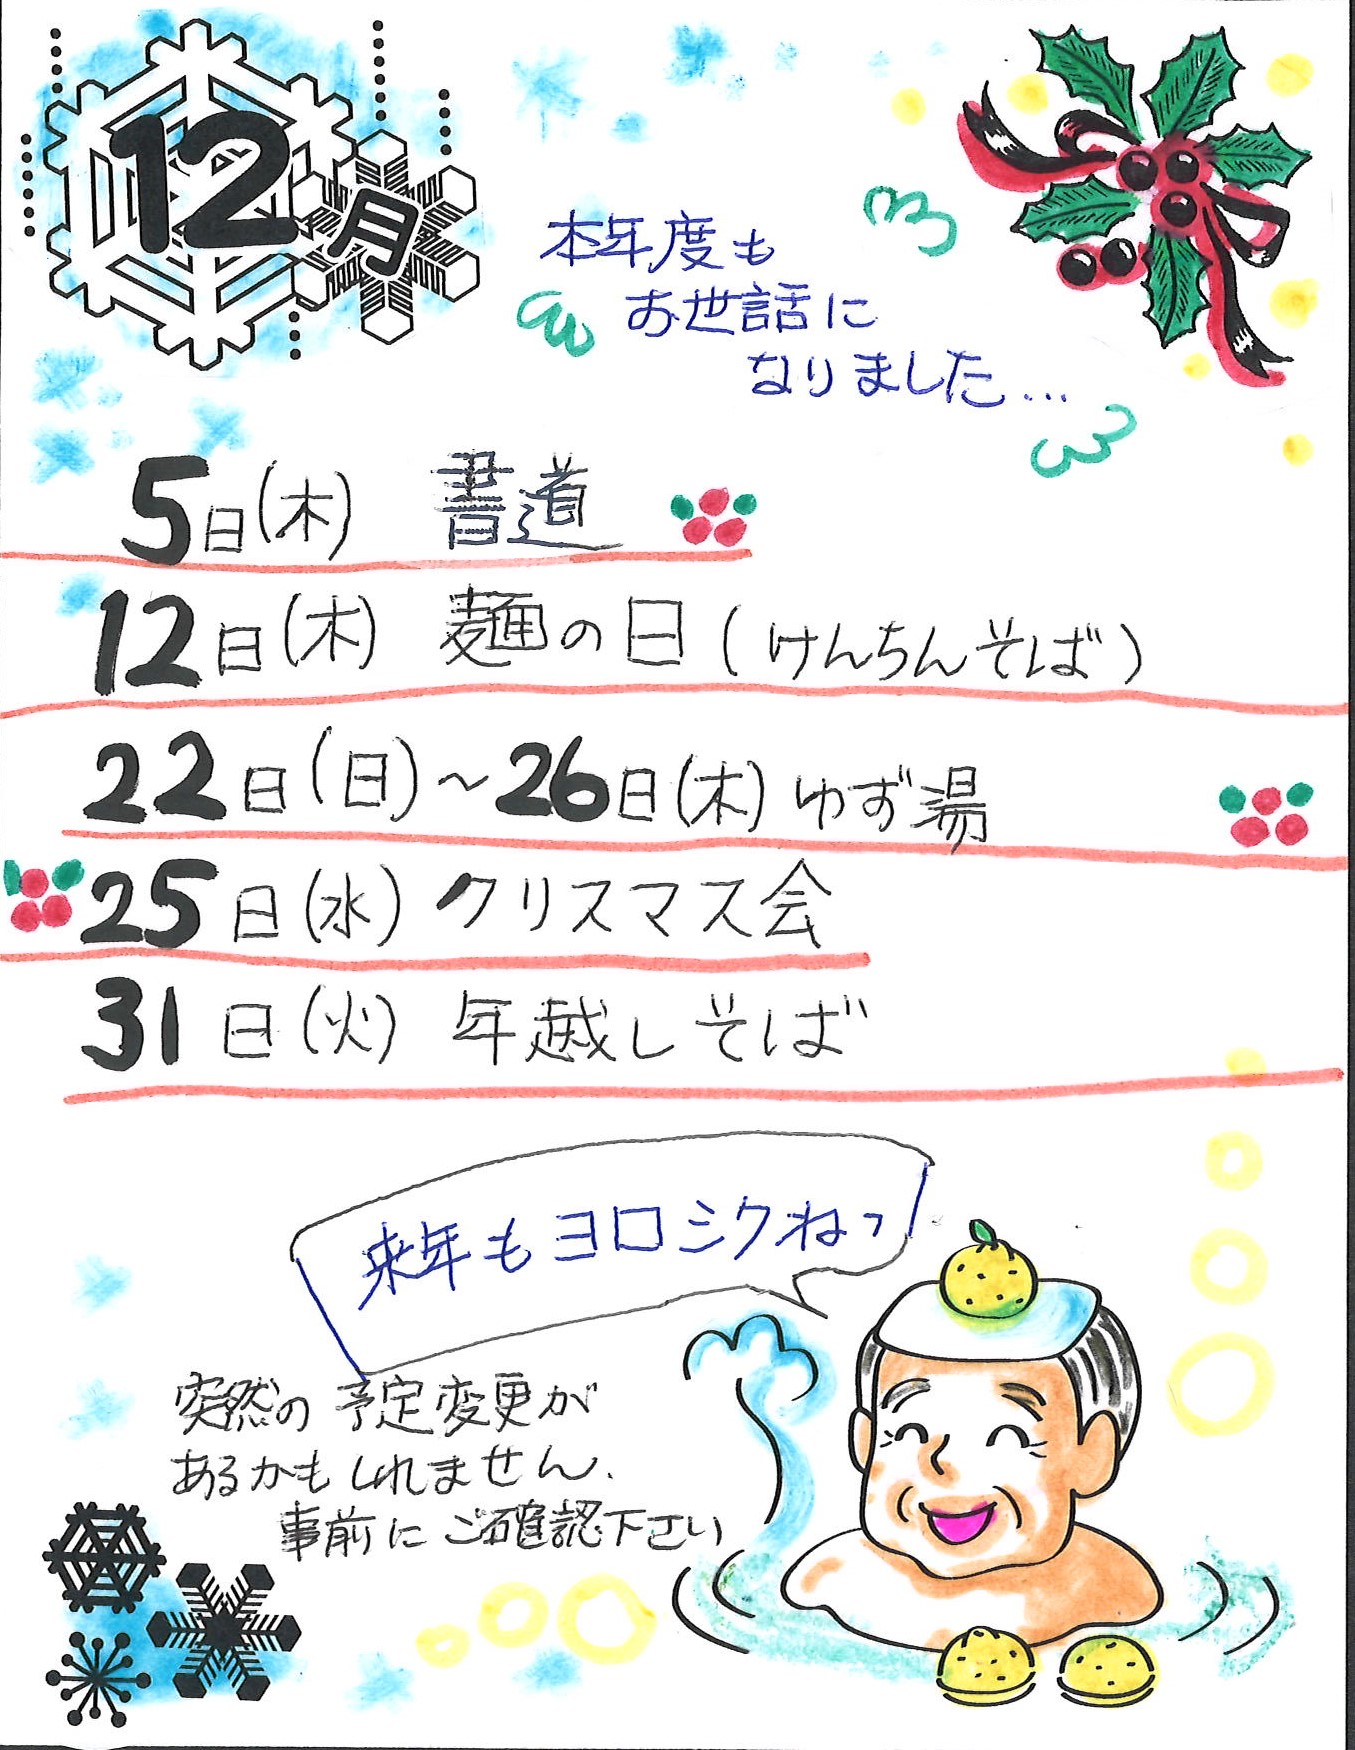 12月
本年度も
お世話に
なりました…
5日(木) 書道
12日(木) 麺の日(けんちんそば)
22日(日)~26日(木) ゆず湯
25日(水) クリスマス会
31日(火) 年越しそば
来年もヨロシクねっ
突然の予定変更が
あるかもしれません.
事前にご確認下さい